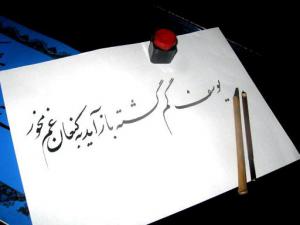 یوسف گم گشته باز آید به کنعان غم مخور